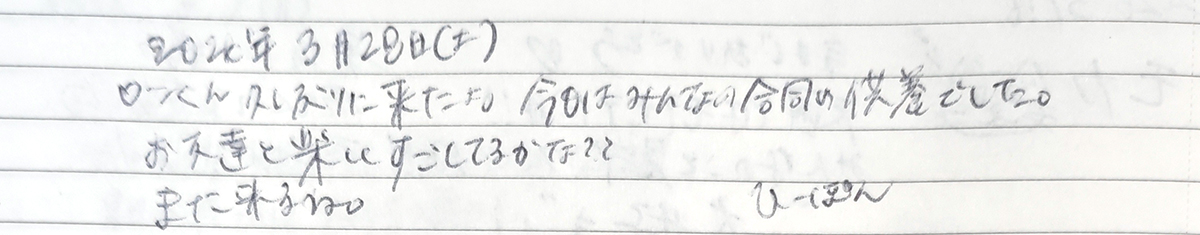 2026年 3月28日(土)
ローくん 久しぶりに来たよ。今日はみんなの合同の供養でした。
お友達と楽しくすごしてるかな??
また来るね。 ひーぽん